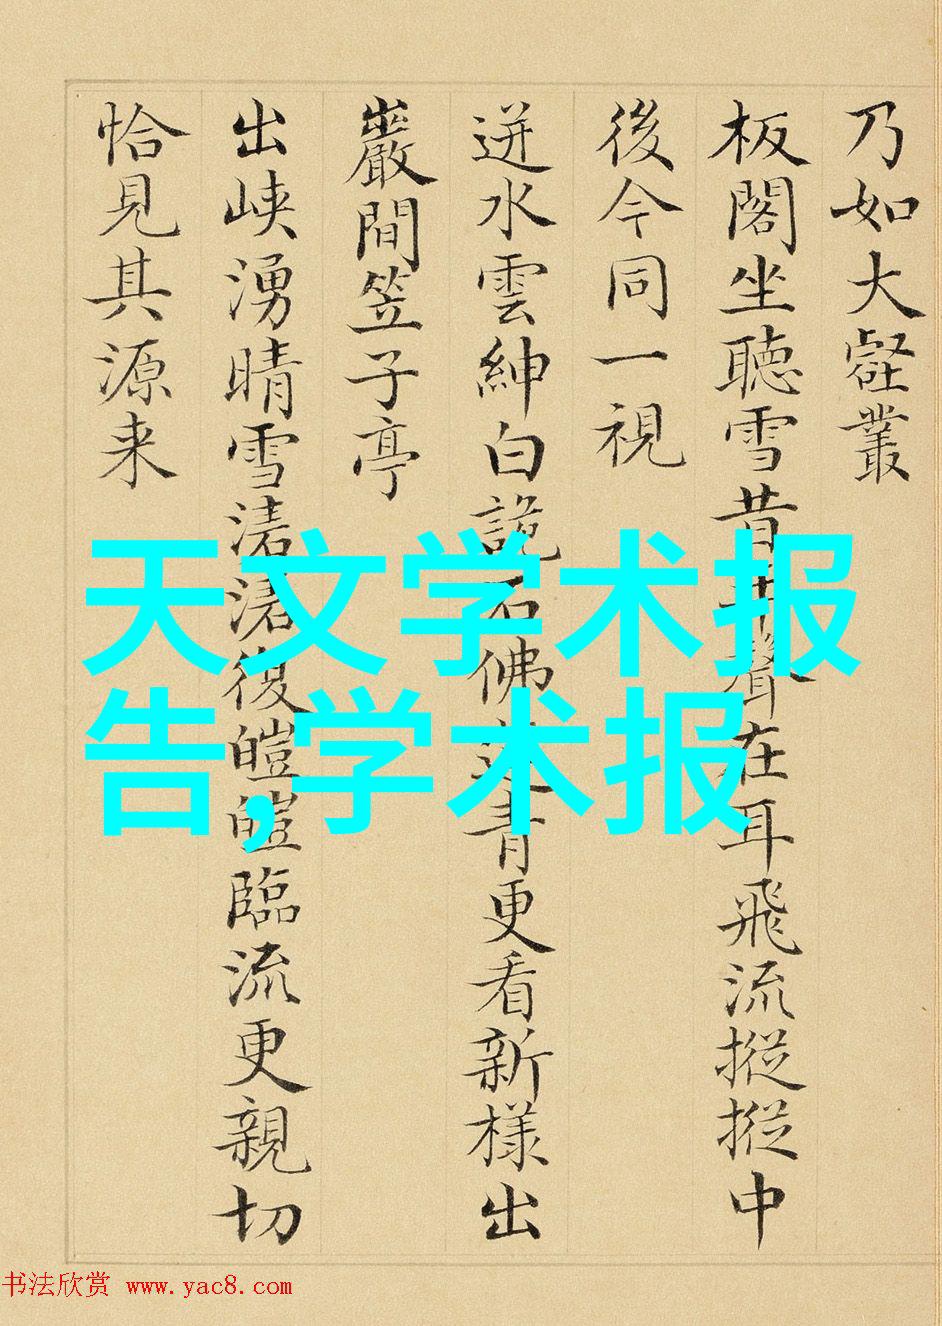 乃如大壑叢
板閣坐聽雪昔年聲在耳飛流摐摐中
後今同一視
迸水雲紳白詭石佛迹青更看新樣出
巖間笠子亭
出峽湧晴雪涾涾復皚皚臨流更親切
恰見其源来
天文学术报
告,学术报
书法欣赏 www.yac8.com